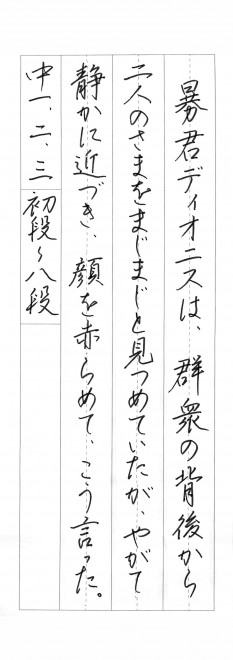 暴君ディオニスは、群衆の背後から
二人のさまをまじまじと見つめていたが、やがて
静かに近づき、顔を赤らめて、こう言った。
中一、二、三
初段〜八段